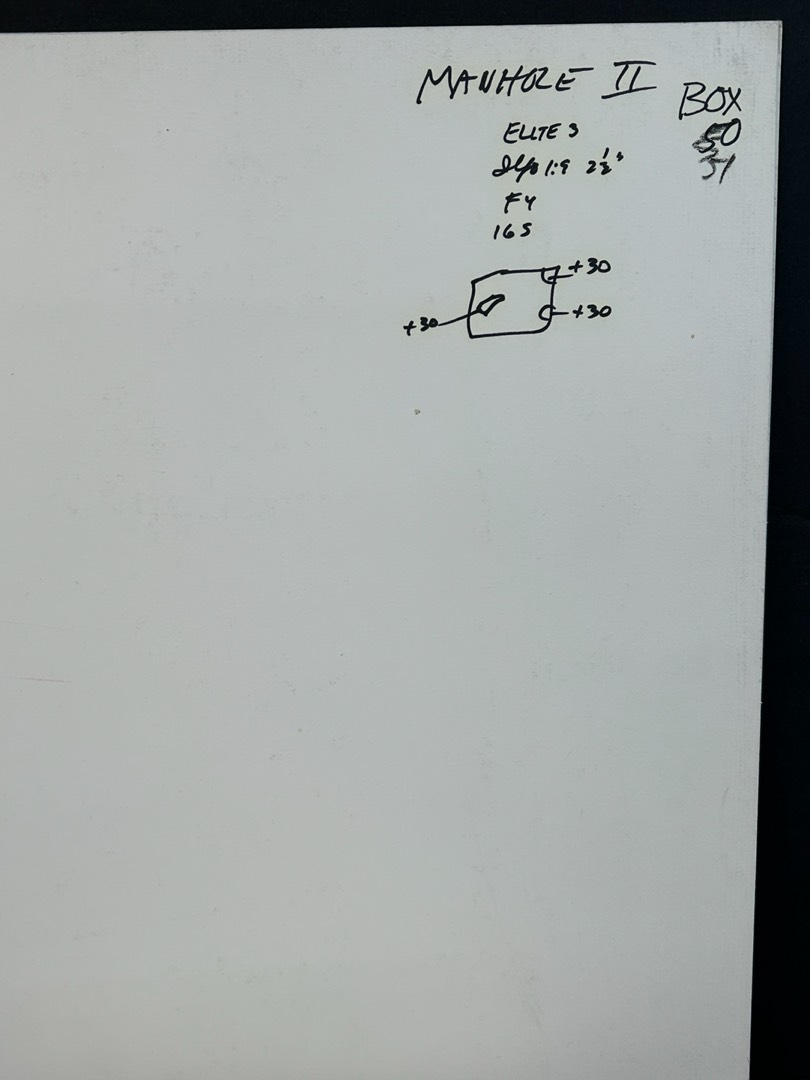 MANHOLE II
BOX
50
51
ELITE 3
Ilfo 1:9 2½"
F4
16 S
+30
+30
+30